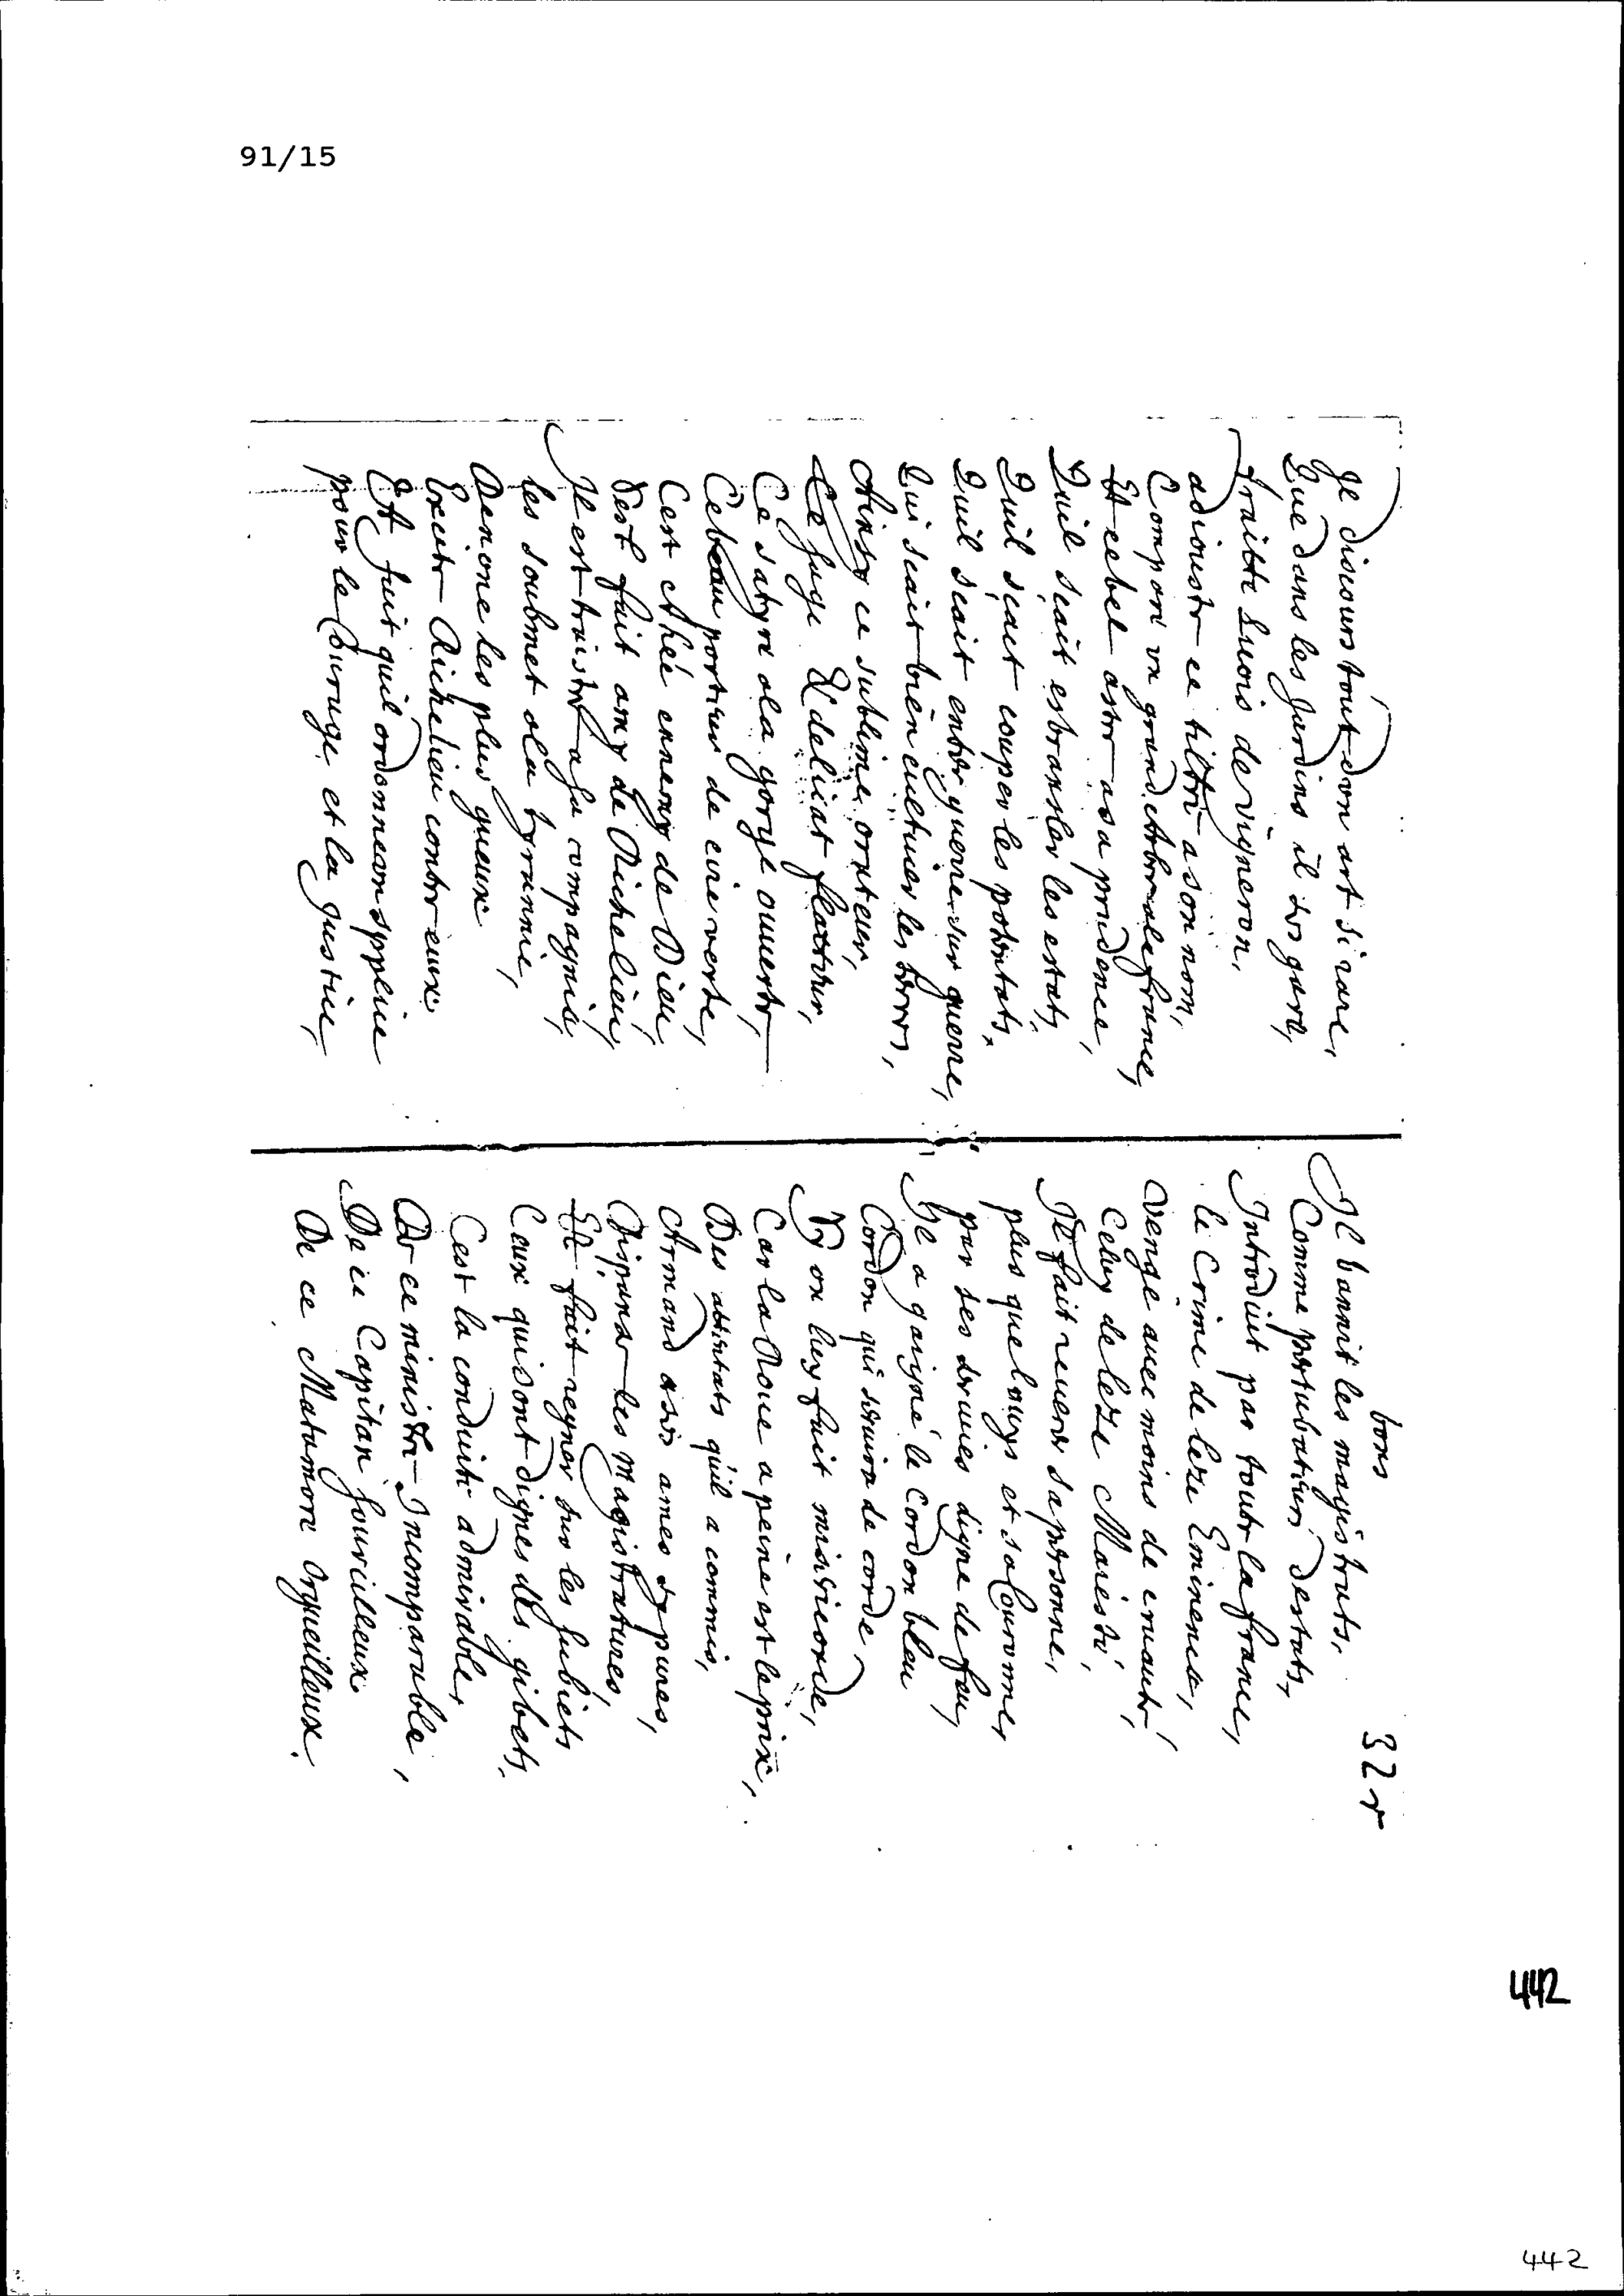 91/15
Je discours tout don art si rare,
Que dans les Jardins il
Traitte de vigneron,
adiouste ce tiltre a son nom,
Compare un grand Arbre a la france,
Et cebel astre a sa prudence,
Quil sçait estransler les estats,
Quil sçait couper les potentats,
Quil sçait enter guerre sur guerre,
Qui sçait bien cultiver les terres,
Ainsy ce sublime orateur,
Ce sage & delicat flatteur,
Ce satyre a la gorge ouverte,
Ce beau portier de cire verte,
Cest Athée ennemy de Dieu,
Sest fait amy de Richelieu,
Il est traistre a sa compagnie,
les soubmet a la tyrannie,
Denonce les plus gueux
Excite Richelieu contre eux.
Et fait quil ordonne un supplice
pour le Courage et la Justice,
32 r
bons
Il bannit les magistrats,
Comme pertubateurs destats,
Introduit par toute la france,
le Crime de leze Eminence,
venge avec moins de cruauté,
Celuy de leze Maiesté,
Il fait reverer sa personne,
plus que louys et sa Couronne,
par ses digne de feu,
Il a gaigné le Cordon bleu
Cordon qui servira de corde,
Sy on luy fait misericorde,
Car la Roue a peine est le prix,
Des attentats quil a commis,
Armand ames sy pures,
Dispense les Magistratures,
Et fait regner sur les subiets
Ceux qui sont dignes des gibets,
Cest la conduite admirable,
De ce ministre Incomparable,
De ce Capitan sourcilleux
De ce Matamore Orgueilleux.
442
442